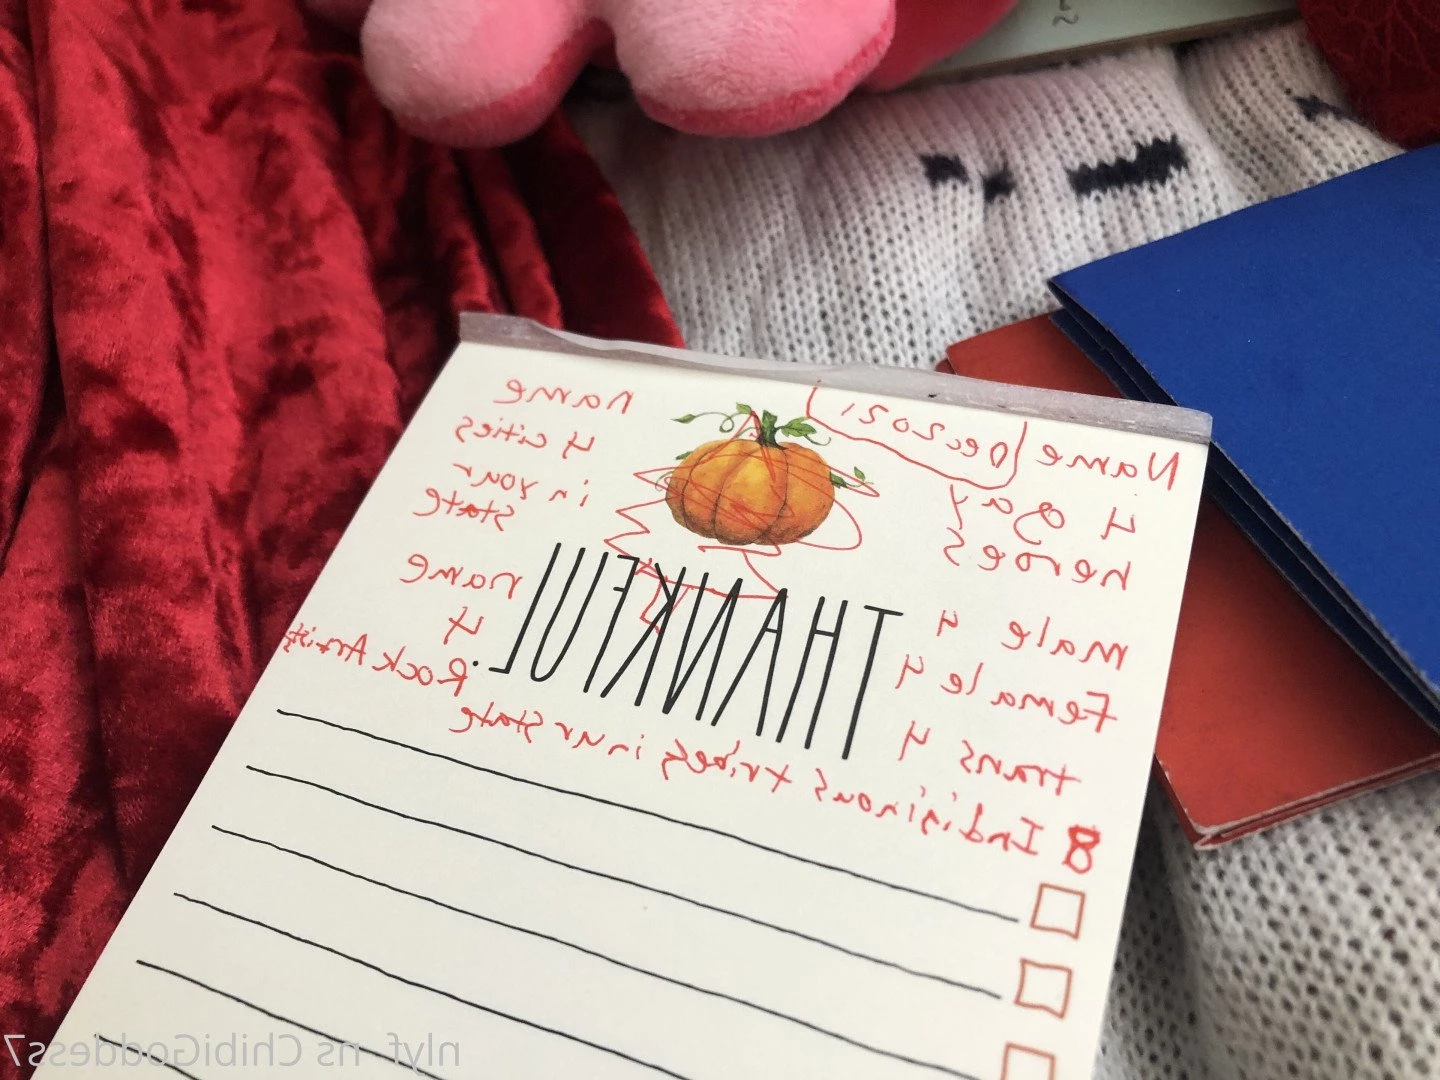 Name
Dec2021
4 gay
heroes
male 4
Female 4
trans 4
THANKFUL.
name
4 cities
in your
state
name
4
Rock Artists
8 Indiginous tribes in ur state
nlyf_ns ChibiGoddess7